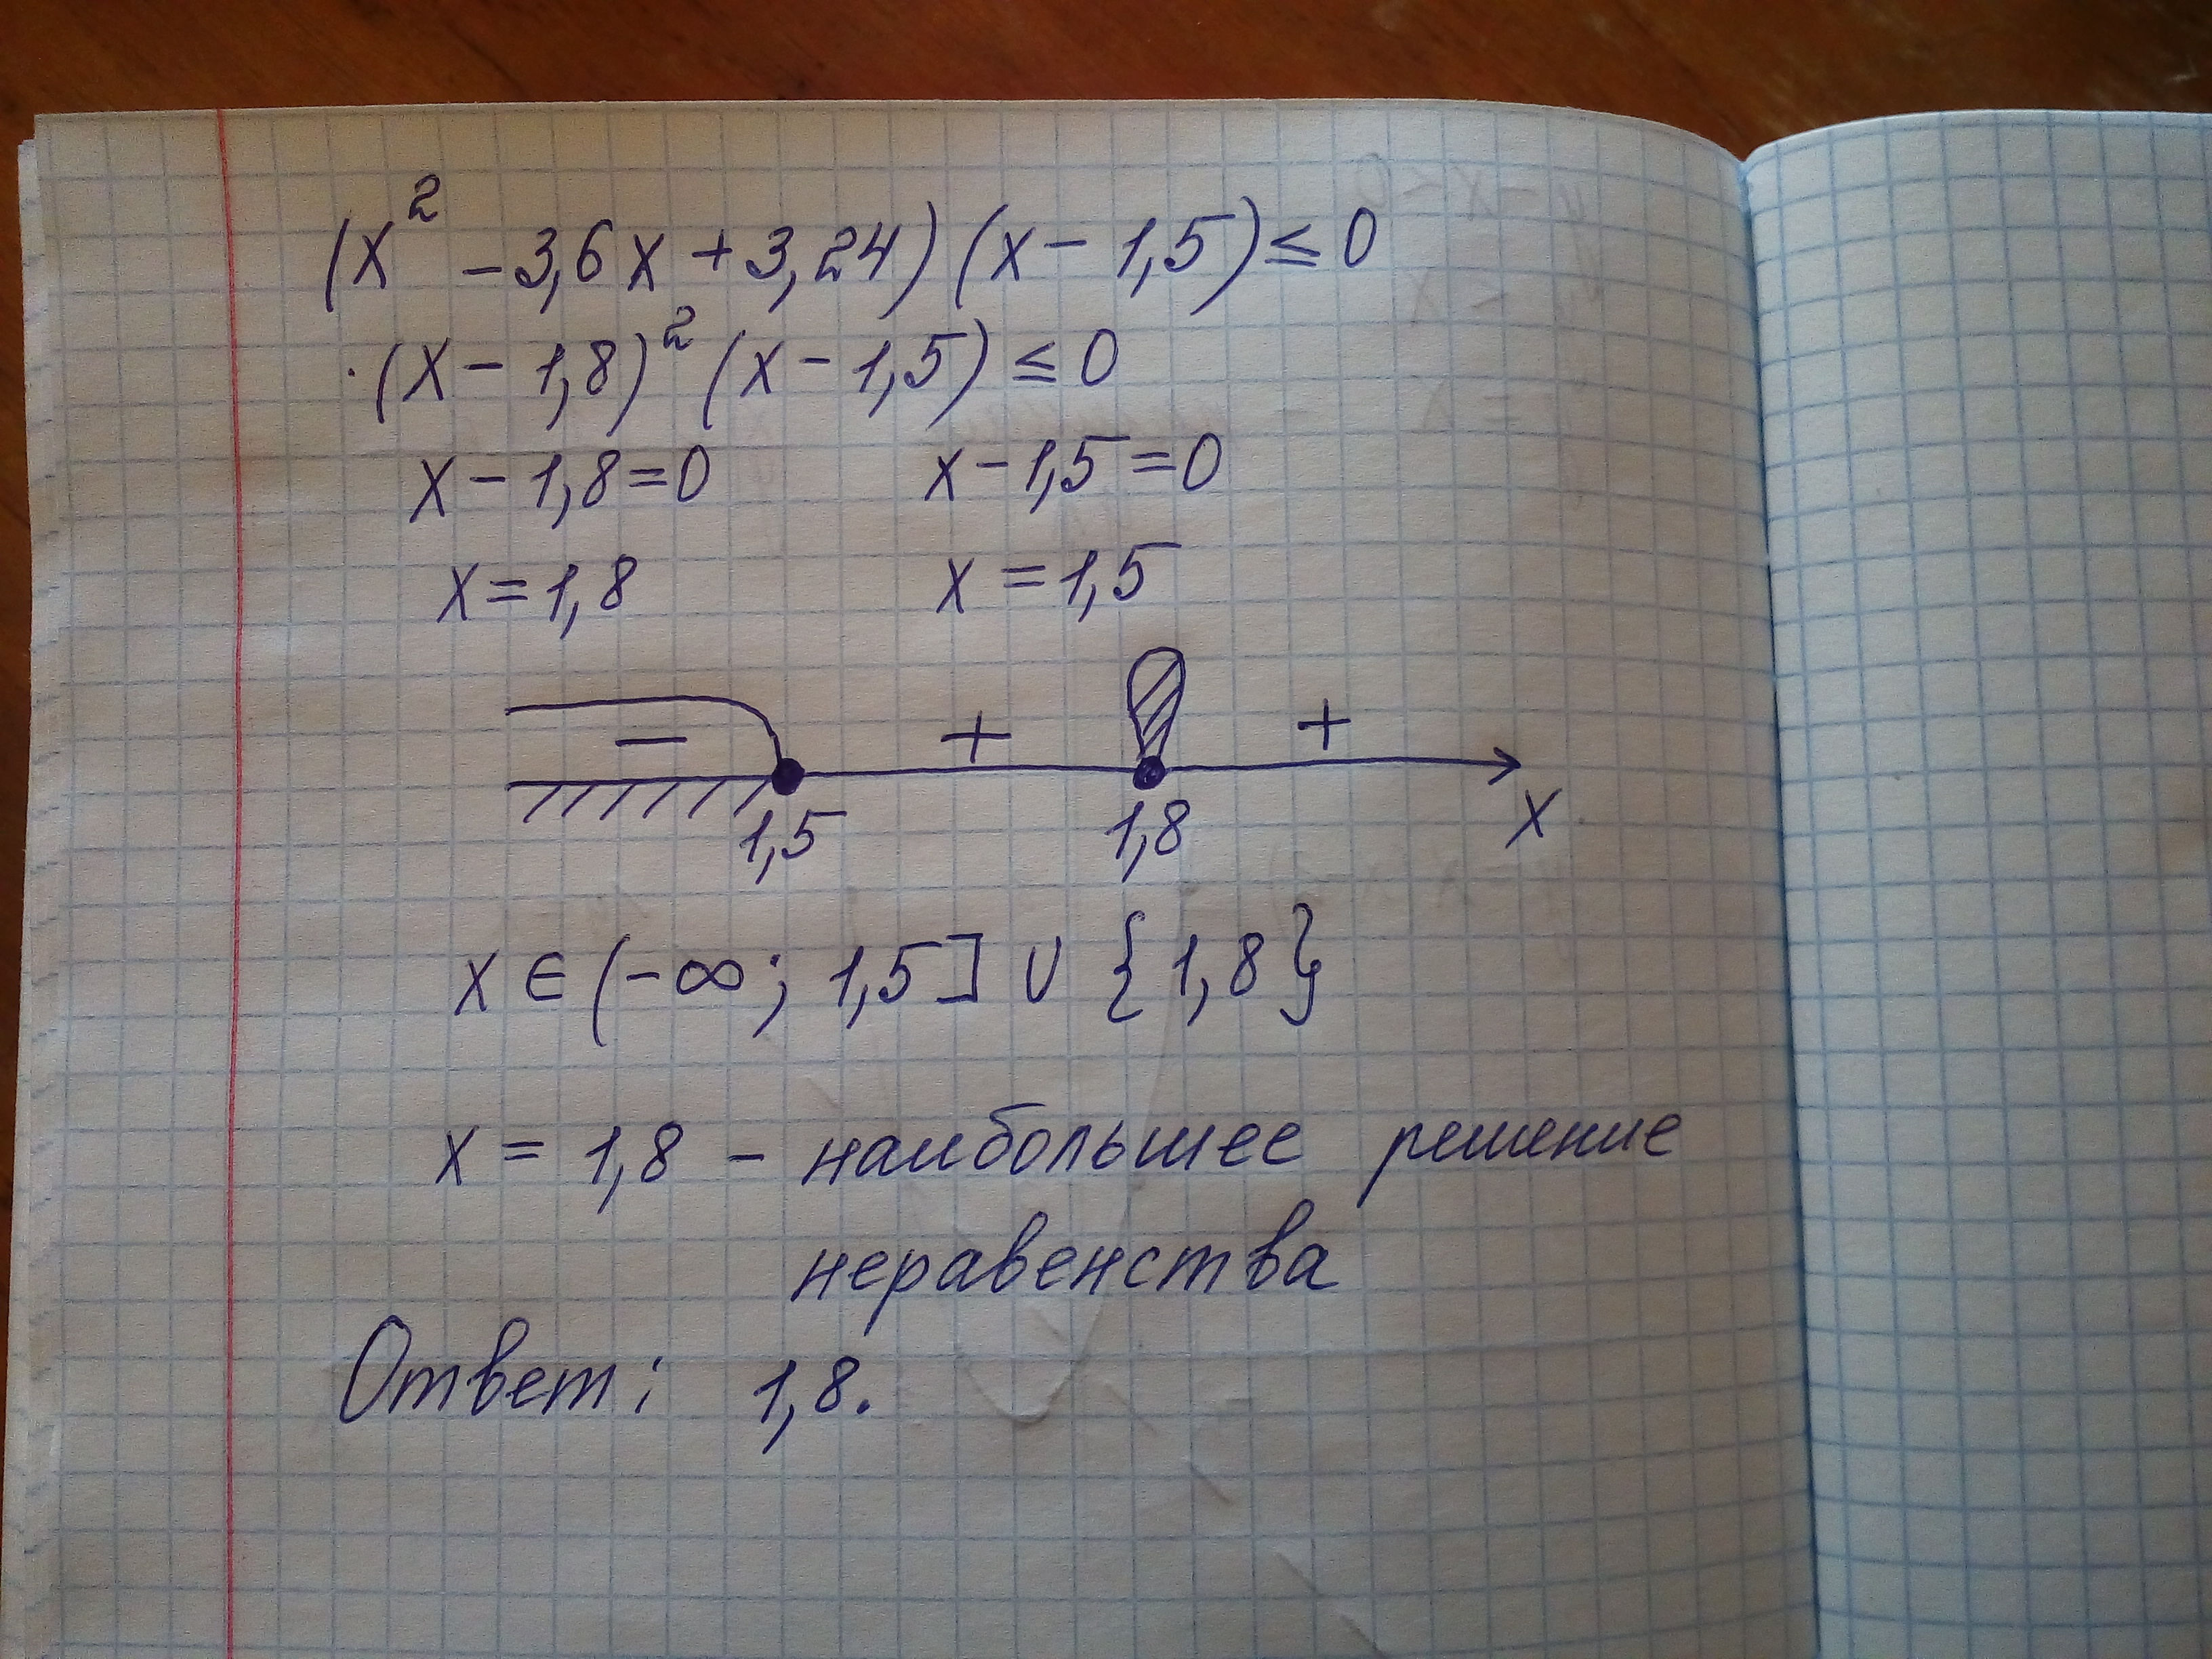 (x² - 3,6x + 3,24)(x - 1,5) ≤ 0
(x - 1,8)² (x - 1,5) ≤ 0
x - 1,8 = 0 x - 1,5 = 0
x = 1,8 x = 1,5
− + +
1,5 1,8 x
x ∈ (-∞; 1,5] ∪ {1,8}
x = 1,8 - наибольшее решение
неравенства
Ответ: 1,8.